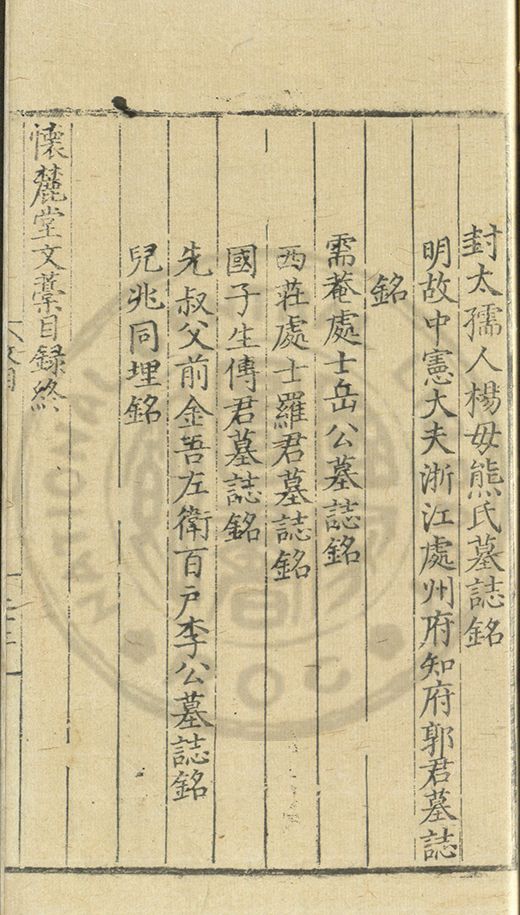 封太孺人楊母熊氏墓誌銘
明故中憲大夫浙江處州府知府郭君墓誌
銘
需菴處士岳公墓誌銘
西莊處士羅君墓誌銘
國子生傅君墓誌銘
先叔父前金吾左衛百戶李公墓誌銘
兒兆同埋銘
懷麓堂文藁目録終